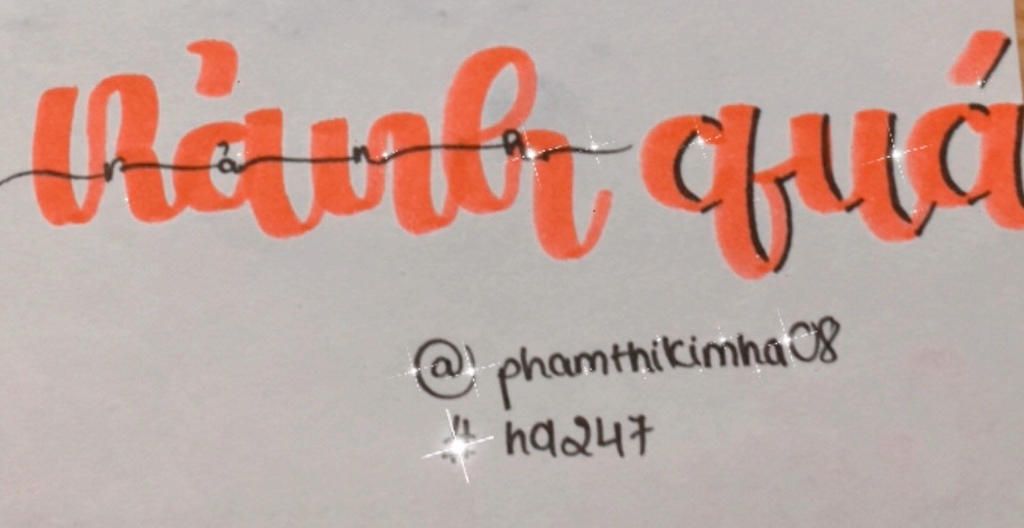 rảnh quá
rảnh
@phamthikimha08
# ha247